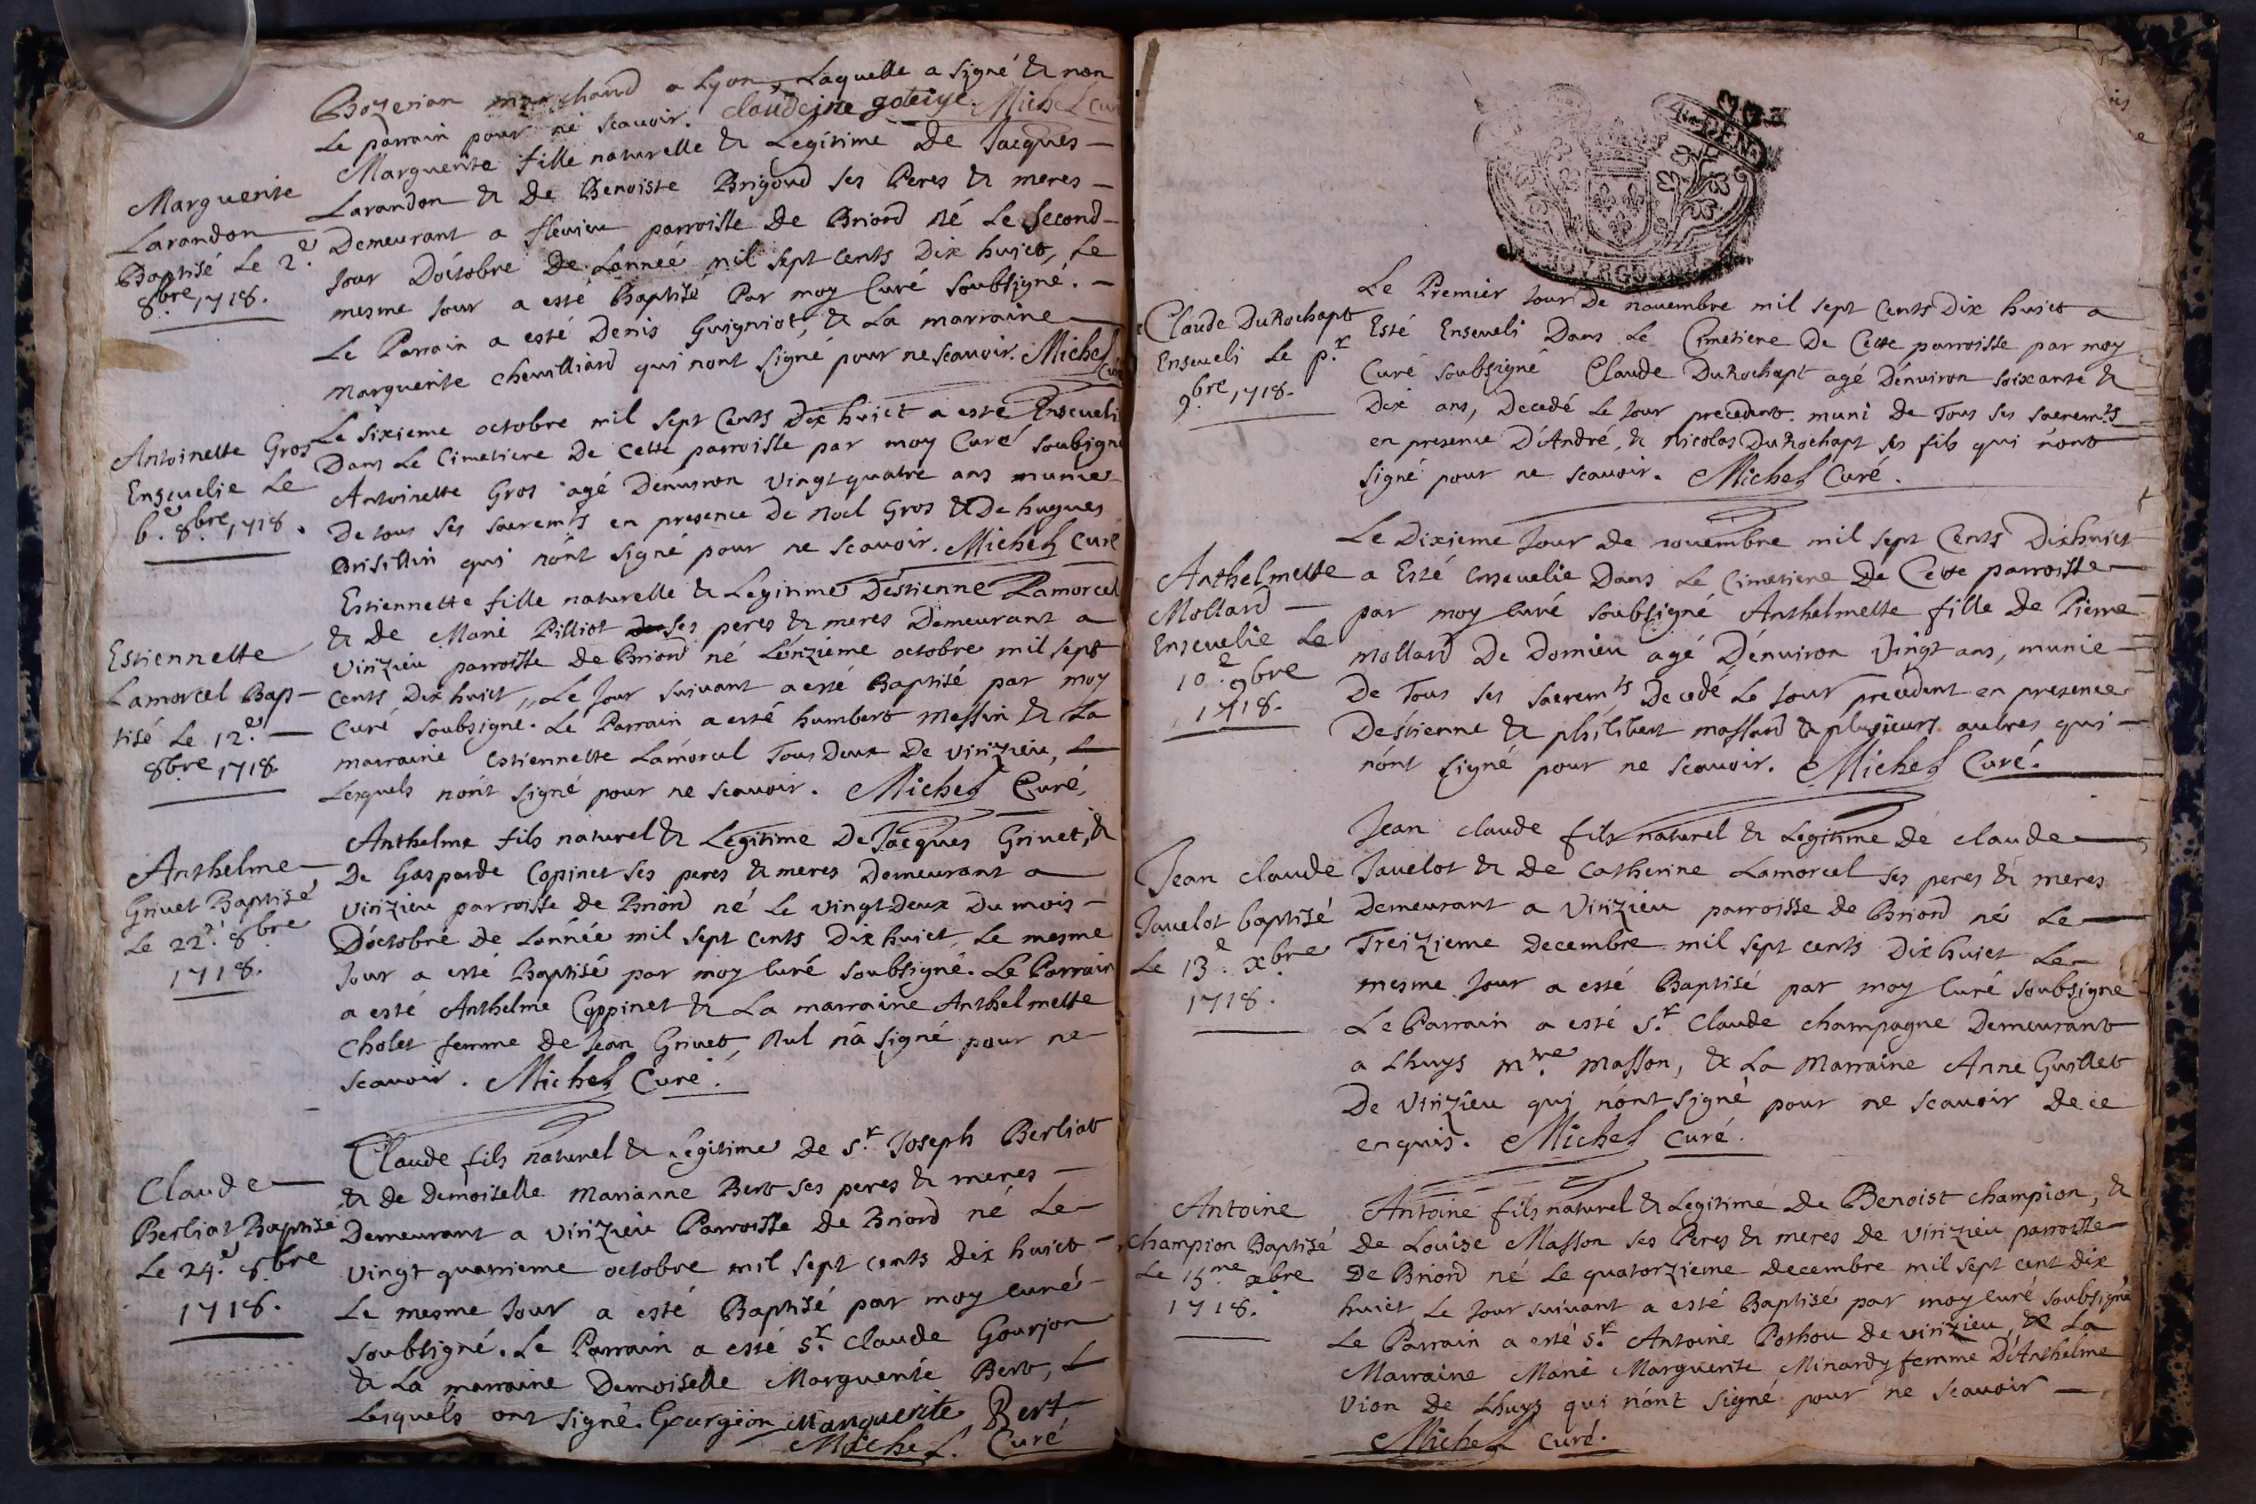 Bozerian marchand a Lyon, Laquelle a signé & non
Le parrain pour ne scauoir. Claudeine goteiye. Michel Cur
Marguerite
Larandon
Baptisé Le 2e.
8bre, 1718.
Marguerite fille naturelle & Legitime de Jacques
Larandon & de Benoiste Brigoud ses Peres & meres
Demeurant a flevieu parroisse de Briord né Le second
Jour Doctobre de Lannée mil sept cents Dix huict, Le
mesme Jour a esté Baptisé Par moy Curé soubsigné.
Le Parrain a esté Denis Guigniot, & La marraine
Marguerite chevilliard qui nont signé pour ne scauoir. Michel
Cur
Antoinette Gros
Enseuelie Le
6e. 8bre, 1718.
Le sixieme octobre mil sept Cents Dix huict a esté Enseueli
Dans Le Cimetiere De Cette parroisse par moy Curé soubsigné
Antoinette Gros agé Denuiron vingtquatre ans munie
De tous ses sacremts en presence De Noel Gros & De hugues
Brisillin qui nont signé pour ne scauoir. Michel Curé
Estiennette
Lamorcel Bap-
tisé Le 12e.
8bre, 1718.
Estiennette fille naturelle & Legitime Destienne Lamorcel
& de Marie Pilliot ses peres & meres Demeurant a
Virizieu parroisse de Briord né Lonzieme octobre mil sept
cents Dix huict,, Le Jour suivant a esté Baptisé par moy
Curé soubsigné. Le Parrain a esté humbert Massin & La
marraine Estiennette Lamorcel Tous Deux De virizieu, L
Lesquels nont signé pour ne scauoir. Michel Curé.
Anthelme
Griuet Baptisé
Le 22e. 8bre
1718.
Anthelme fils naturel & Legitime De Jacques Griuet, &
De Gasparde Copinet ses peres & meres Demeurant a
Virizieu parroisse de Briord né Le vingtDeux Du mois
Doctobre de Lannée mil sept cents Dix huict, Le mesme
Jour a esté Baptisé par moy Curé soubsigné. Le Parrain
a esté Anthelme Coppinet & La marraine Anthelmette
Cholet femme de Jean Griuet, Nul na signé pour ne
scauoir. Michel Curé.
Claude
Berliat Baptisé
Le 24e. 8bre
1718.
Claude fils naturel & Legitime de Sr. Joseph Berliat
& de demoiselle Marianne Bert ses peres & meres
Demeurant a virizieu Parroisse de Briord né Le
vingt quatrieme octobre mil sept cents dix huict
Le mesme Jour a esté Baptisé par moy curé
soubsigné. Le Parrain a esté Sr. Claude Gourjon
& La marraine Demoiselle Marguerite Bert, L
Lesquels ont signé. Gourgion Marguerite Bert
Michel. Curé
4. DEN.
BOVRGOGNE
Claude DuRochapt
Enseueli Le pr.
9bre, 1718.
Le Premier Jour De nouembre mil sept Cents Dix huict a
Esté Enseueli Dans Le Cimetiere De Cette parroisse par moy
Curé soubsigné Claude DuRochapt agé Denuiron soixante &
Dix ans, Decedé Le Jour precedent. muni de Tous ses sacremts
en presence D'André, & Nicolas DuRochapt ses fils qui nont
signé pour ne scauoir. Michel Curé.
Anthelmette
Mollard
Enseuelie Le
10e. 9bre
1718.
Le Dixieme Jour de nouembre mil sept Cents Dixhuict
a Esté enseuelie Dans Le Cimetiere De Cette parroisse
par moy Curé soubsigné Anthelmette fille de Pierre
Mollard De Dornieu agé Denuiron Vingt ans, munie
De Tous ses sacremts, Decedé Le Jour precedent en presence
Destienne & philibert mollard & plusieurs autres qui
nont signé pour ne scauoir. Michel Curé.
Jean claude
Jauelot baptisé
Le 13e. xbre
1718.
Jean claude fils naturel & Legitime de claude
Jauelot & de Catherine Lamorcel ses peres & meres
Demeurant a Virizieu parroisse de Briord né Le
Treizieme decembre mil sept cents Dix huict Le
mesme Jour a esté Baptisé par moy Curé soubsigné
Le Parrain a esté Sr. Claude champagne Demeurant
a Lhuys mtre. masson, & La Marraine Anne Guillet
De virizieu qui nont signé pour ne scauoir de ce
enquis. Michel Curé.
Antoine
champion Baptisé
Le 15me. xbre
1718.
Antoine fils naturel & Legitime de Benoist champion, &
de Louise Masson ses Peres & meres de virizieu parroisse
De Briord né Le quatorzieme decembre mil sept cent dix
huict Le Jour suiuant a esté Baptisé par moy curé soubsigné
Le Parrain a esté Sr. Antoine Pothou de virizieu, & La
Marraine Marie Marguerite Minardy femme D'Anthelme
Vion de Lhuys qui nont signé pour ne scauoir
Michel Curé.